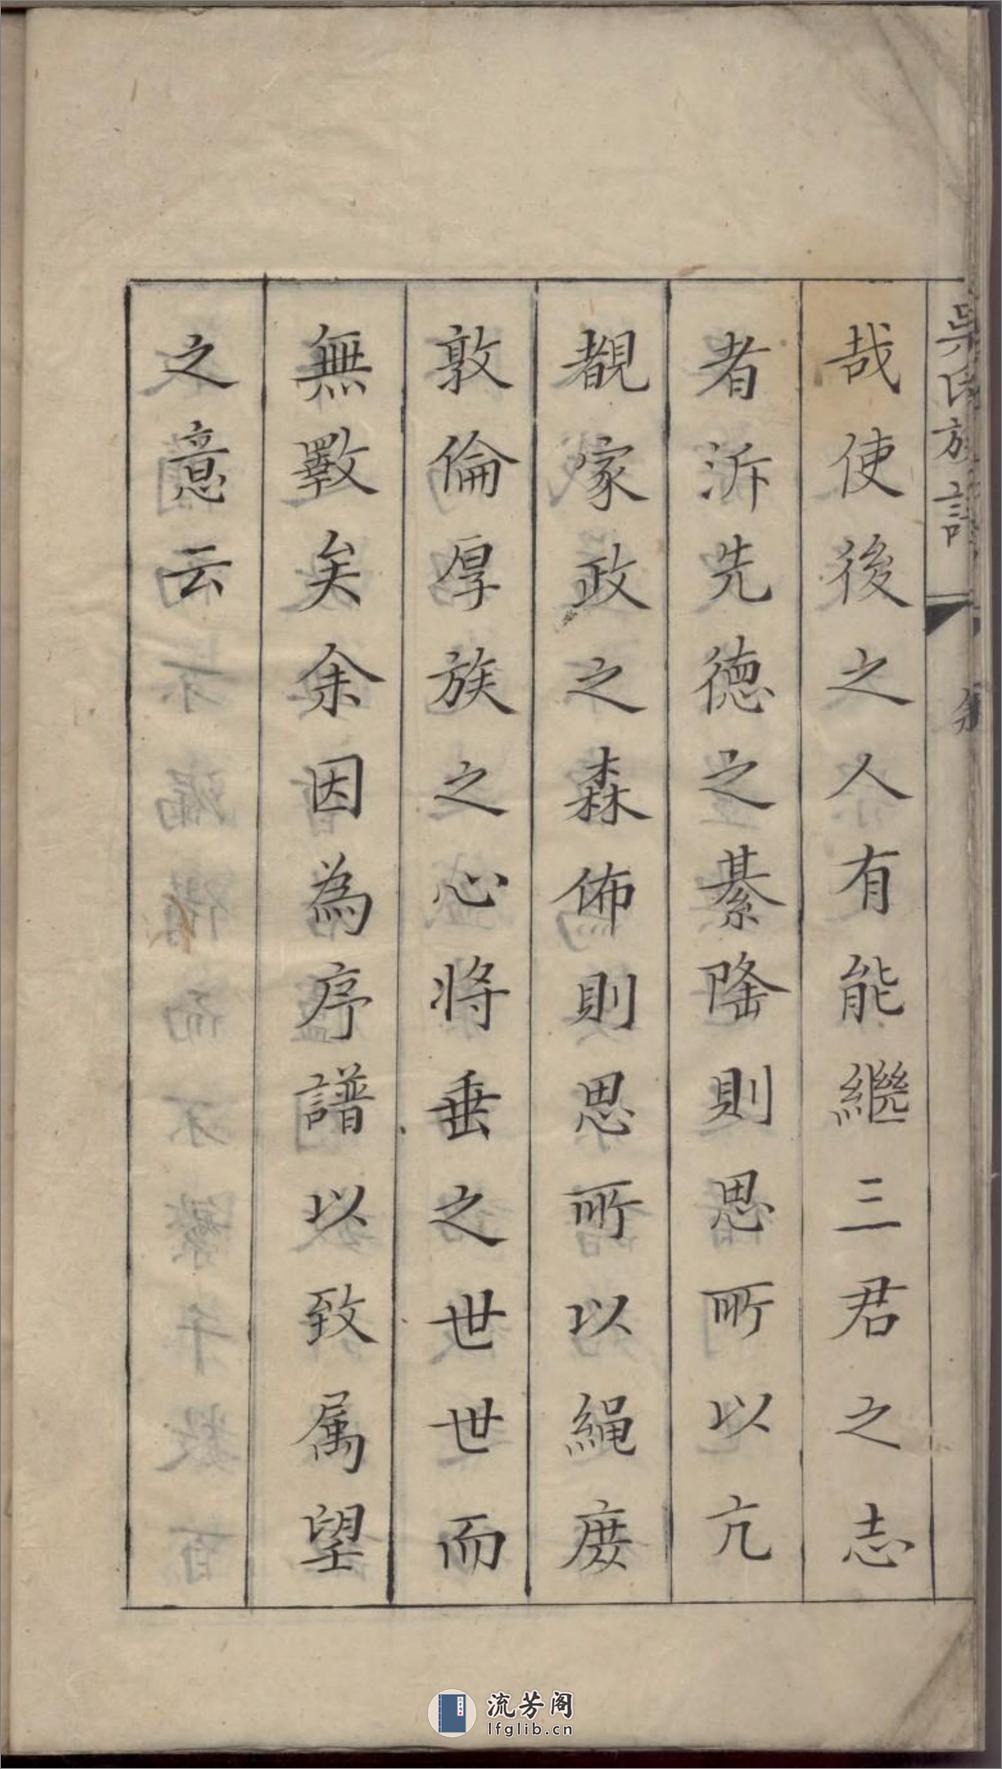 吳氏族譜
哉使後之人有能繼三君之志
者泝先德之綦隆則思所以亢
覩家政之森佈則思所以繩庶
敦倫厚族之心將垂之世世而
無斁矣余因為序譜以致属望
之意云
流芳阁
lfglib.cn